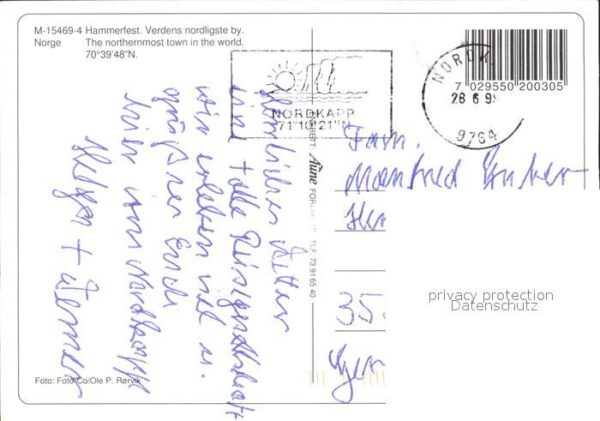 M-15469-4 Hammerfest. Verdens nordligste by.
Norge The northernmost town in the world.
70°39'48"N.
NORDKAPP
71°10'21"N
NORDK
28 6 9
9764
7 029550 200305
Herrliches Wetter
und tolle Reisegesellschaft
wir erleben viel u.
grüßen Euch
hier vom Nordkapp
Helga + Werner
Aune TLF. 73 91 65 40
Fam.
Manfred
35
privacy protection
Datenschutz
Foto: Foto-Co/Ole P. Rørvik